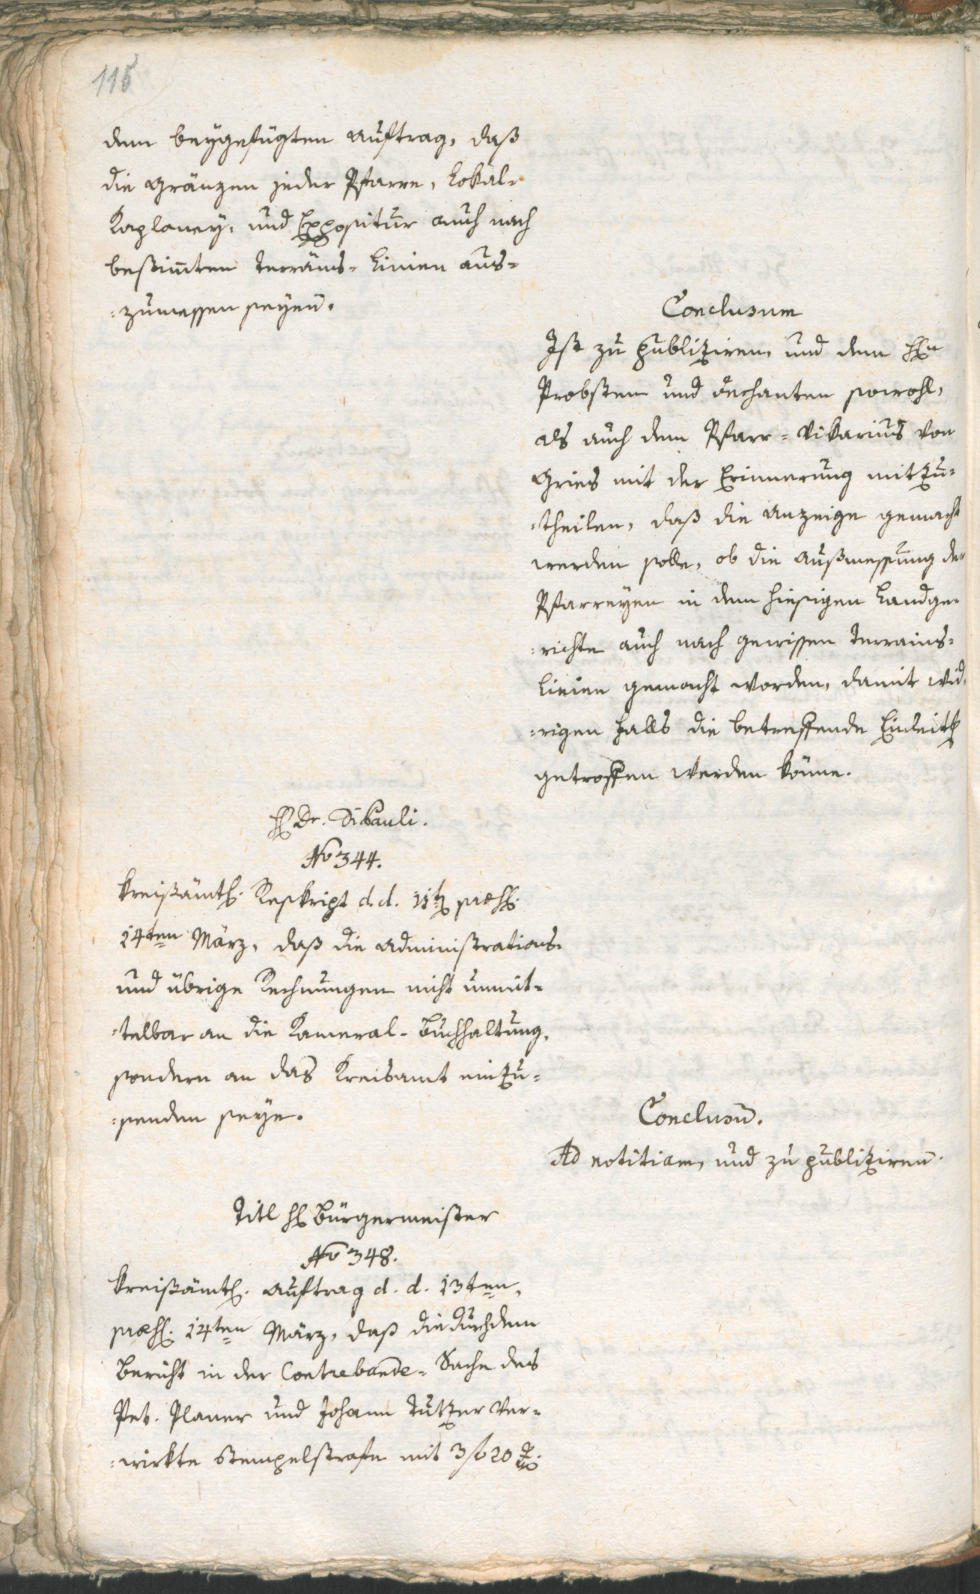 115
dem beygefügten Auftrag, daß
die Gränzen jeder Pfarre, Lokal-
Kaplaney, und Expositur auch nach
bestim̄ten Terrains-Linien aus-
:zumessen seyen.
Conclusum
Ist zu publiziren, und dem Hħn
Probsten und Dechanten sowohl,
als auch dem Pfarr-Vikarius von
Gries mit der Erinnerung mitzu-
:theilen, daß die Anzeige gemacht
werden solle, ob die Außmessung der
Pfarreyen in dem hiesigen Landge-
:richte auch nach gewissen Terrains-
Linien gemacht worden, damit wid-
:rigen Falls die betreffende Einleitg
getroffen werden könne.
H Dr. Di Pauli.
No 344.
Kreißämtl. Reskript d. d. 11t præs.
14ten März, daß die Administrations-
und übrige Rechnungen nicht unmit-
:telbar an die Kameral-Buchhaltung,
sondern an das Kreisamt einzu-
:senden seye.
Conclusū.
Ad notitiam, und zu publiziren.
Titl H Bürgermeister
No 348.
Kreißämtl. Auftrag d. d. 13ten,
præs. 14ten März, daß die durch dem
Bericht in der Contrebande-Sache des
Pet. Planer und Johann Tutzer ver-
:wirkte Stempelstrafe mit 3 f 20 x.